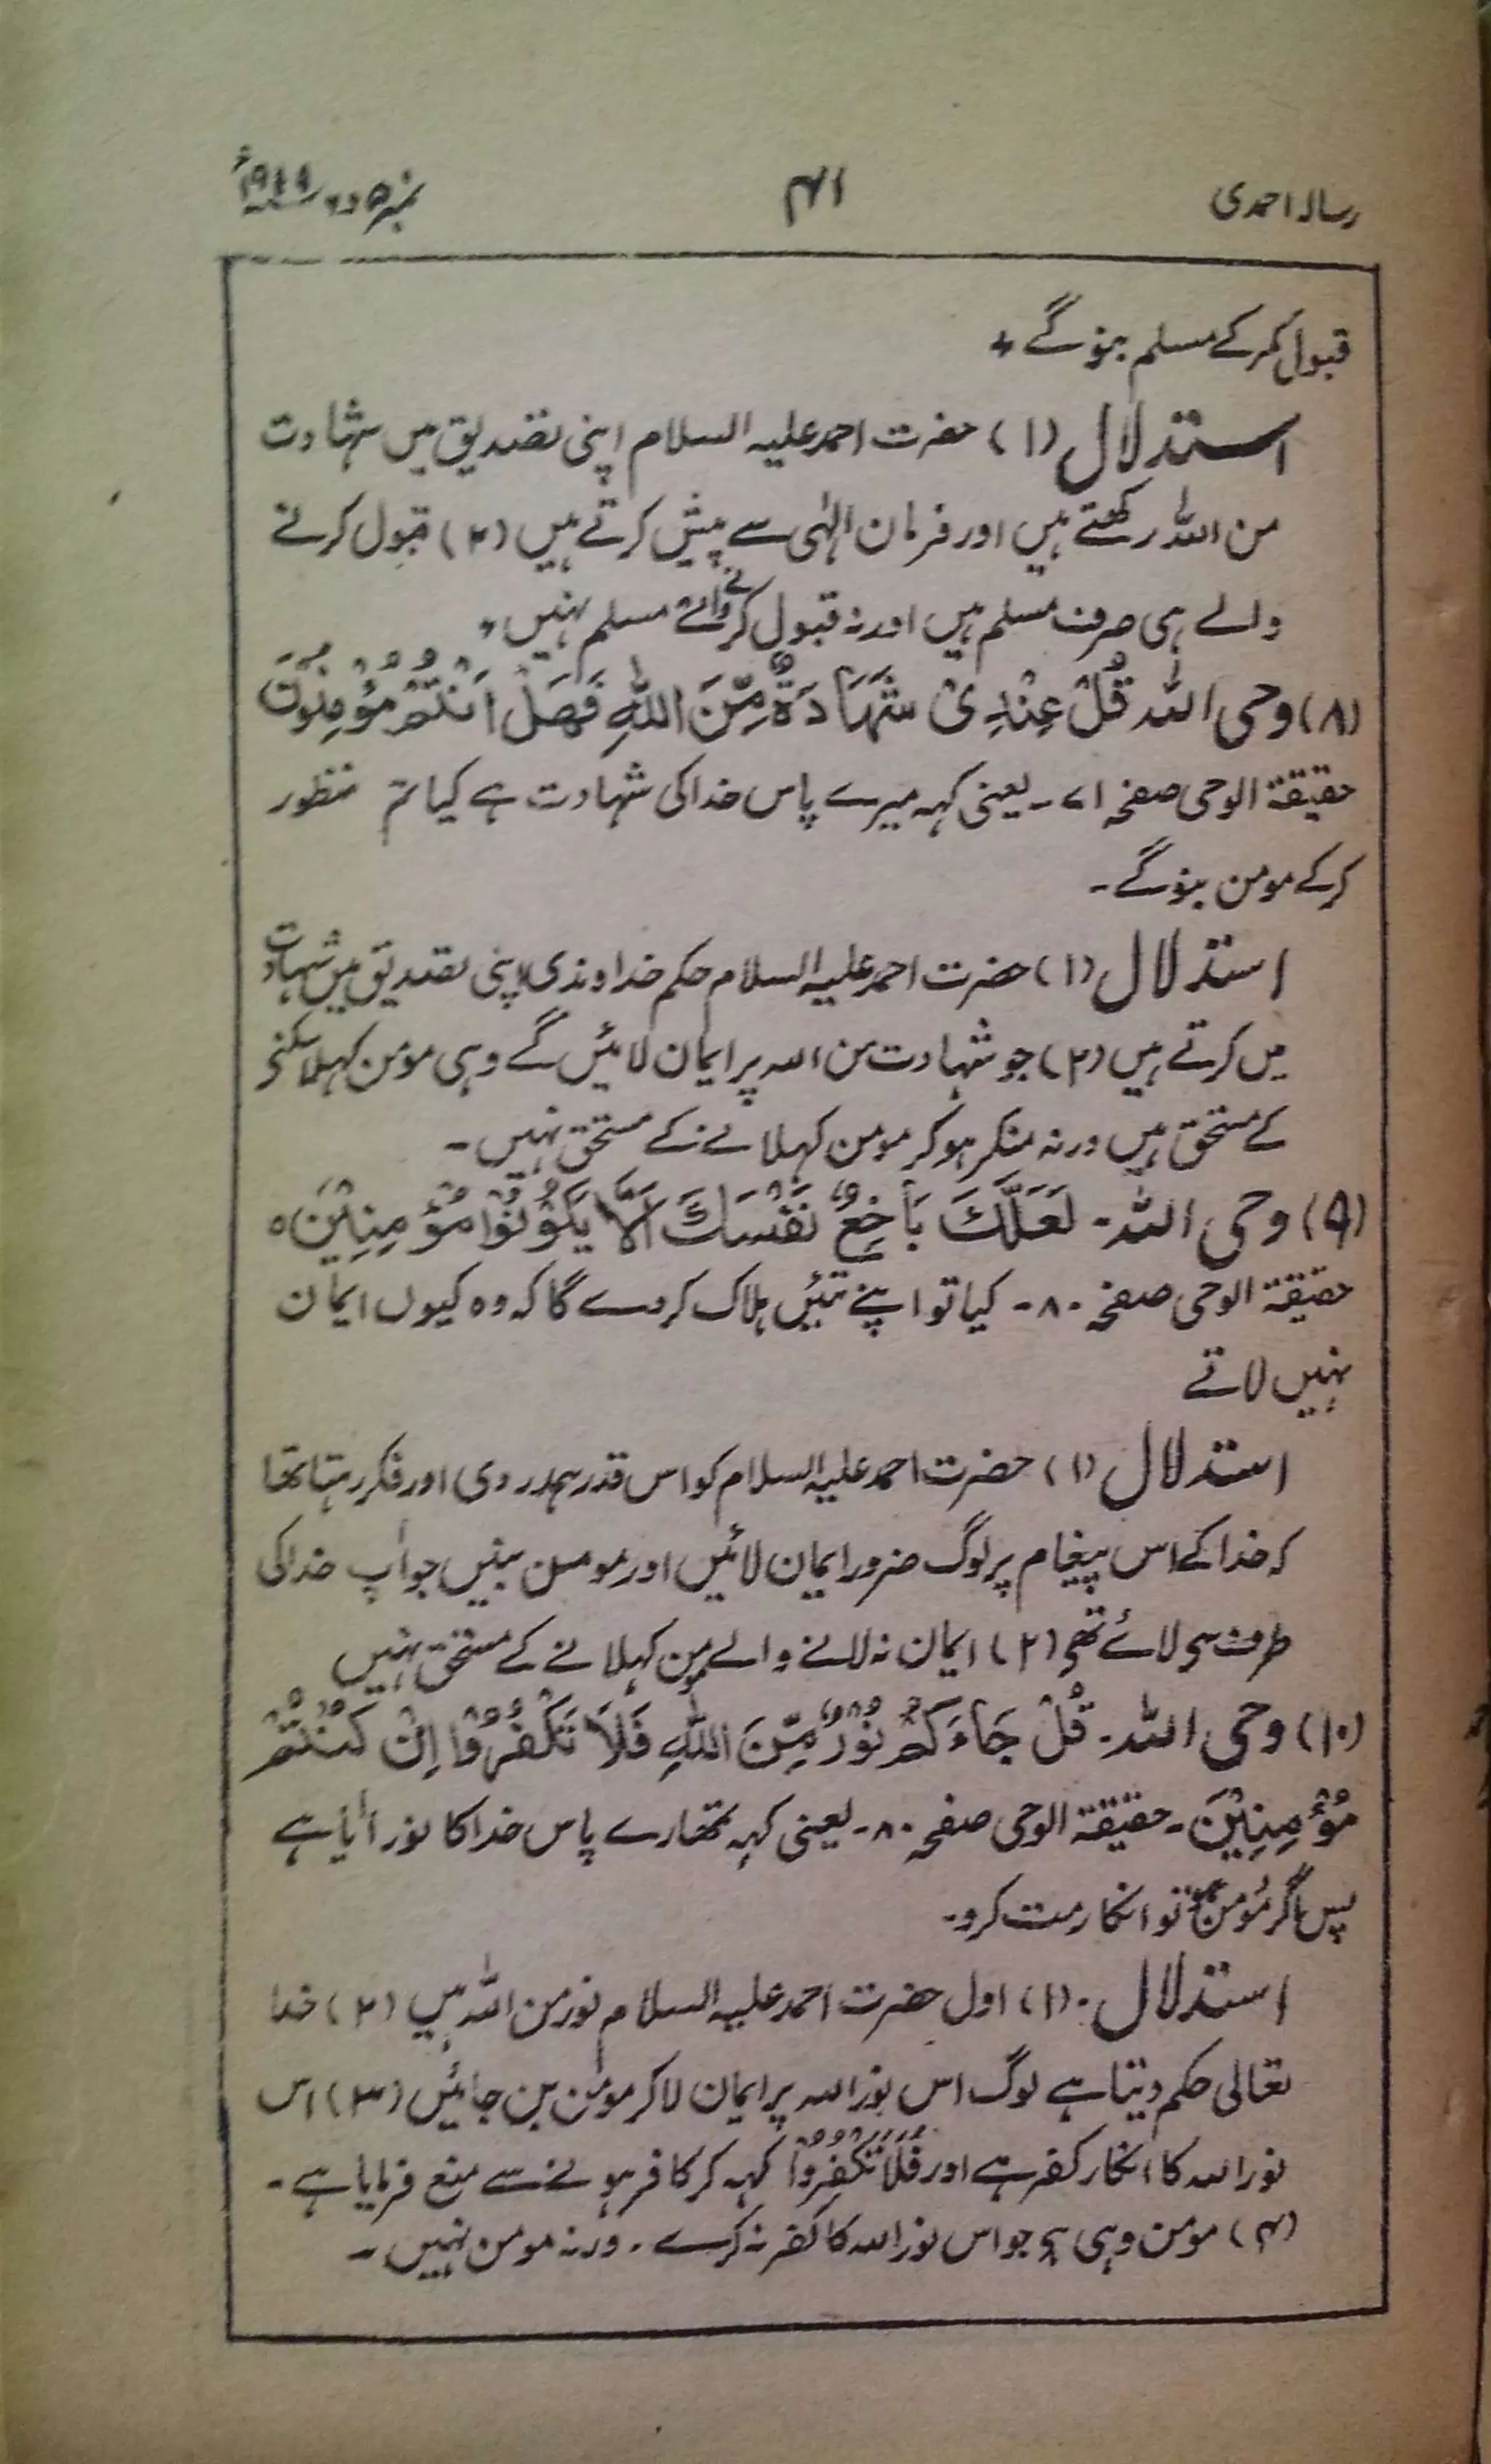 رسالہ احمدی
۴۱
نمبر ۵ و ۶ ۱۹۱۹ء
قبول کرکے مسلم بنوگے
استدلال (۱) حضرت احمد علیہ السلام اپنی تصدیق میں شہادت
من اللہ رکھتے ہیں اور فرمان الٰہی سے پیش کرتے ہیں (۲) قبول کرنے
والے ہی صرف مسلم ہیں اور نہ قبول کرنے والے مسلم نہیں
(۸) وحی اللہ قُلْ عِنْدِیْ شَهَادَةٌ مِّنَ اللّٰهِ فَهَلْ اَنْتُمْ مُؤْمِنُوْنَ
حقیقۃ الوحی صفحہ ۷۱۔ یعنی کہہ میرے پاس خدا کی شہادت ہے کیا تم منظور
کرکے مومن بنوگے۔
استدلال (۱) حضرت احمد علیہ السلام حکم خداوندی اپنی تصدیق میں شہادت
میں کرتے ہیں (۲) جو شہادت من اللہ پر ایمان لائیں گے وہی مومن کہلا سکنے
کے مستحق ہیں ورنہ منکر ہو کر مومن کہلانے کے مستحق نہیں۔
(۹) وحی اللہ۔ لَعَلَّكَ بَاخِعٌ نَفْسَكَ اَلَّا يَكُوْنُوْا مُؤْمِنِيْنَ ہ
حقیقۃ الوحی صفحہ ۸۰۔ کیا تو اپنے تئیں ہلاک کردے گا کہ وہ کیوں ایمان
نہیں لاتے
استدلال (۱) حضرت احمد علیہ السلام کو اس قدر ہمدردی اور فکر رہتا تھا
کہ خدا کے اس پیغام پر لوگ ضرور ایمان لائیں اور مومن بنیں جو آپ خدا کی
طرف سی لائے تھی (۲) ایمان نہ لانے والے مومن کہلانے کے مستحق نہیں
(۱۰) وحی اللہ۔ قُلْ جَاءَكُمْ نُوْرٌ مِّنَ اللّٰهِ فَلَا تَكْفُرُوْا اِنْ كُنْتُمْ
مُؤْمِنِيْنَ۔ حقیقۃ الوحی صفحہ ۸۰۔ یعنی کہہ تمھارے پاس خدا کا نور آیا ہے
پس اگر مُومن ہو تو انکار مت کرو۔
استدلال۔ (۱) اول حضرت احمد علیہ السلام نور من اللہ ہیں (۲) خدا
تعالی حکم دیتا ہے لوگ اس نور اللہ پر ایمان لاکر مومن بن جائیں (۳) اس
نور اللہ کا انکار کفر ہے اور فَلَا تَكْفُرُوْا کہہ کر کافر ہونے سے منع فرمایا ہے۔
(۴) مومن وہی ہے جو اس نور اللہ کا کفر نہ کرے۔ ورنہ مومن نہیں۔